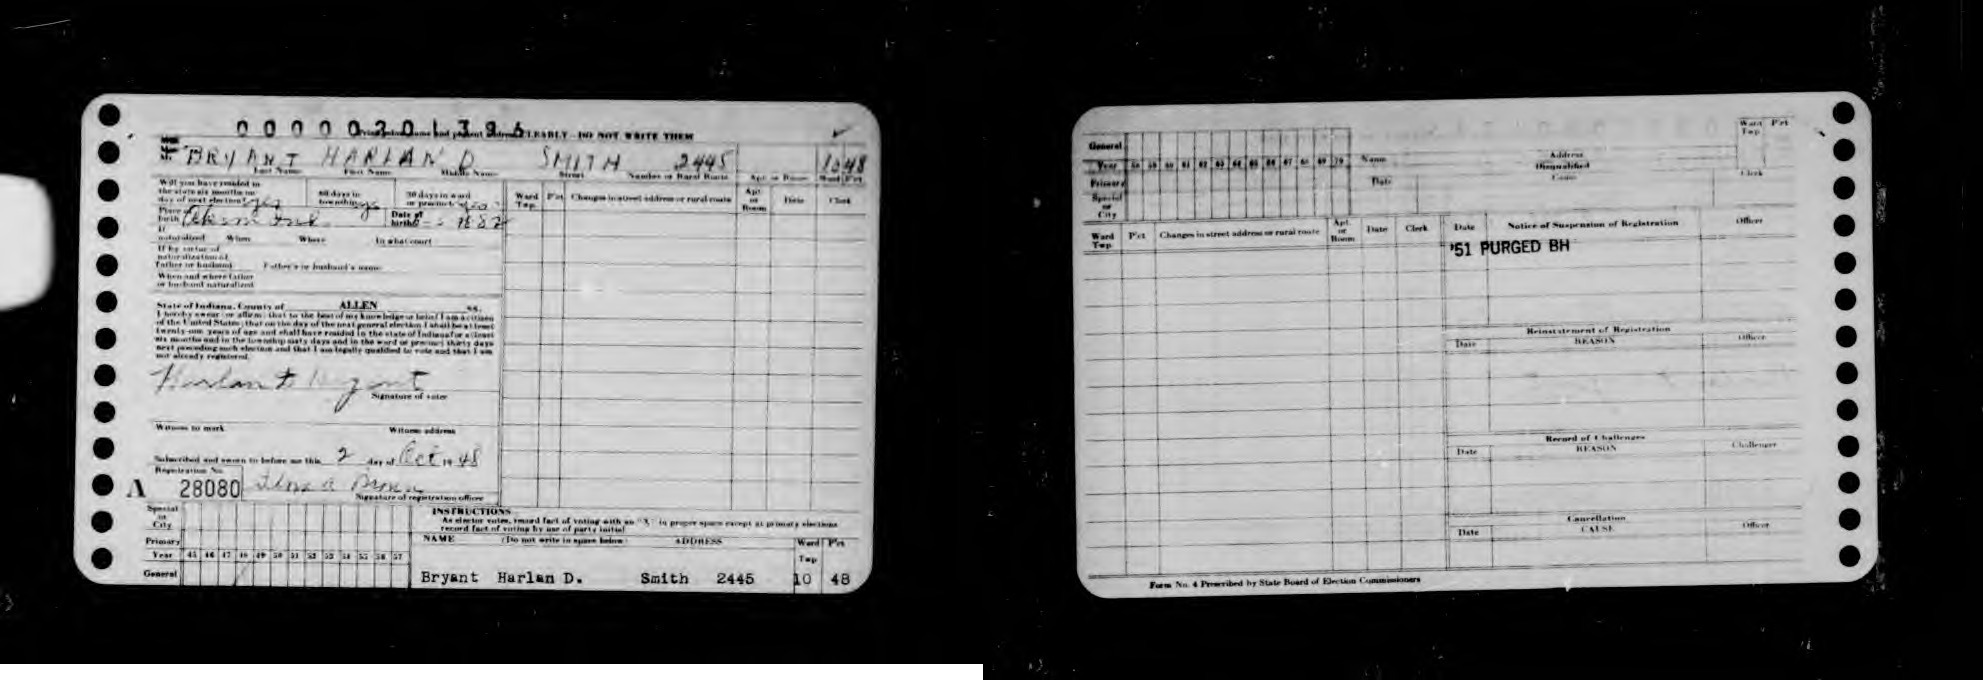 0 0 0 0 0 2 0 1 3 9 6
CLEARLY - DO NOT WRITE THEM
BRYANT HARLAN D. SMITH 2445 10 48
Last Name First Name Middle Name Street Number or Rural Route Apt. or Room Ward Pct
Will you have resided in
the state six months on
day of next election? yes
60 days in
township yes
30 days in ward
or precinct yes
Place of
birth
Date of
birth 1882
If
naturalized When Where In what court
If by virtue of
naturalization of
Father or husband Father's or husband's name
When and where father
or husband naturalized
Ward
Twp.
Pct
Changes in street address or rural route
Apt.
or
Room
Date
Clerk
State of Indiana, County of ALLEN ss.
I hereby swear (or affirm) that to the best of my knowledge or belief I am a citizen
of the United States; that on the day of the next general election I shall be at least
twenty-one years of age and shall have resided in the state of Indiana for at least
six months and in the township sixty days and in the ward or precinct thirty days
next preceding such election and that I am legally qualified to vote and that I am
not already registered.
Harlan D Bryant
Signature of voter
Witness to mark Witness address
Subscribed and sworn to before me this 2 day of Oct 19 48
Registration No.
A 28080
Signature of registration officer
Special
or
City
Primary
Year 45 46 47 48 49 50 51 52 53 54 55 56 57
General
INSTRUCTIONS
As elector votes, record fact of voting with an "X" in proper space except at primary elections
record fact of voting by use of party initial
NAME (Do not write in space below) ADDRESS Ward Pct
Twp
Bryant Harlan D. Smith 2445 10 48
General
Year 58 59 60 61 62 63 64 65 66 67 68 69 70
Primary
Special
or
City
Name Address
Disqualified
Date Cause Clerk
Ward
Twp.
Pct
Ward
Twp.
Pct
Changes in street address or rural route
Apt.
or
Room
Date
Clerk
Date Notice of Suspension of Registration Officer
'51 PURGED BH
Reinstatement of Registration
Date REASON Officer
Record of Challenges
Date REASON Challenger
Cancellation
Date CAUSE Officer
Form No. 4 Prescribed by State Board of Election Commissioners